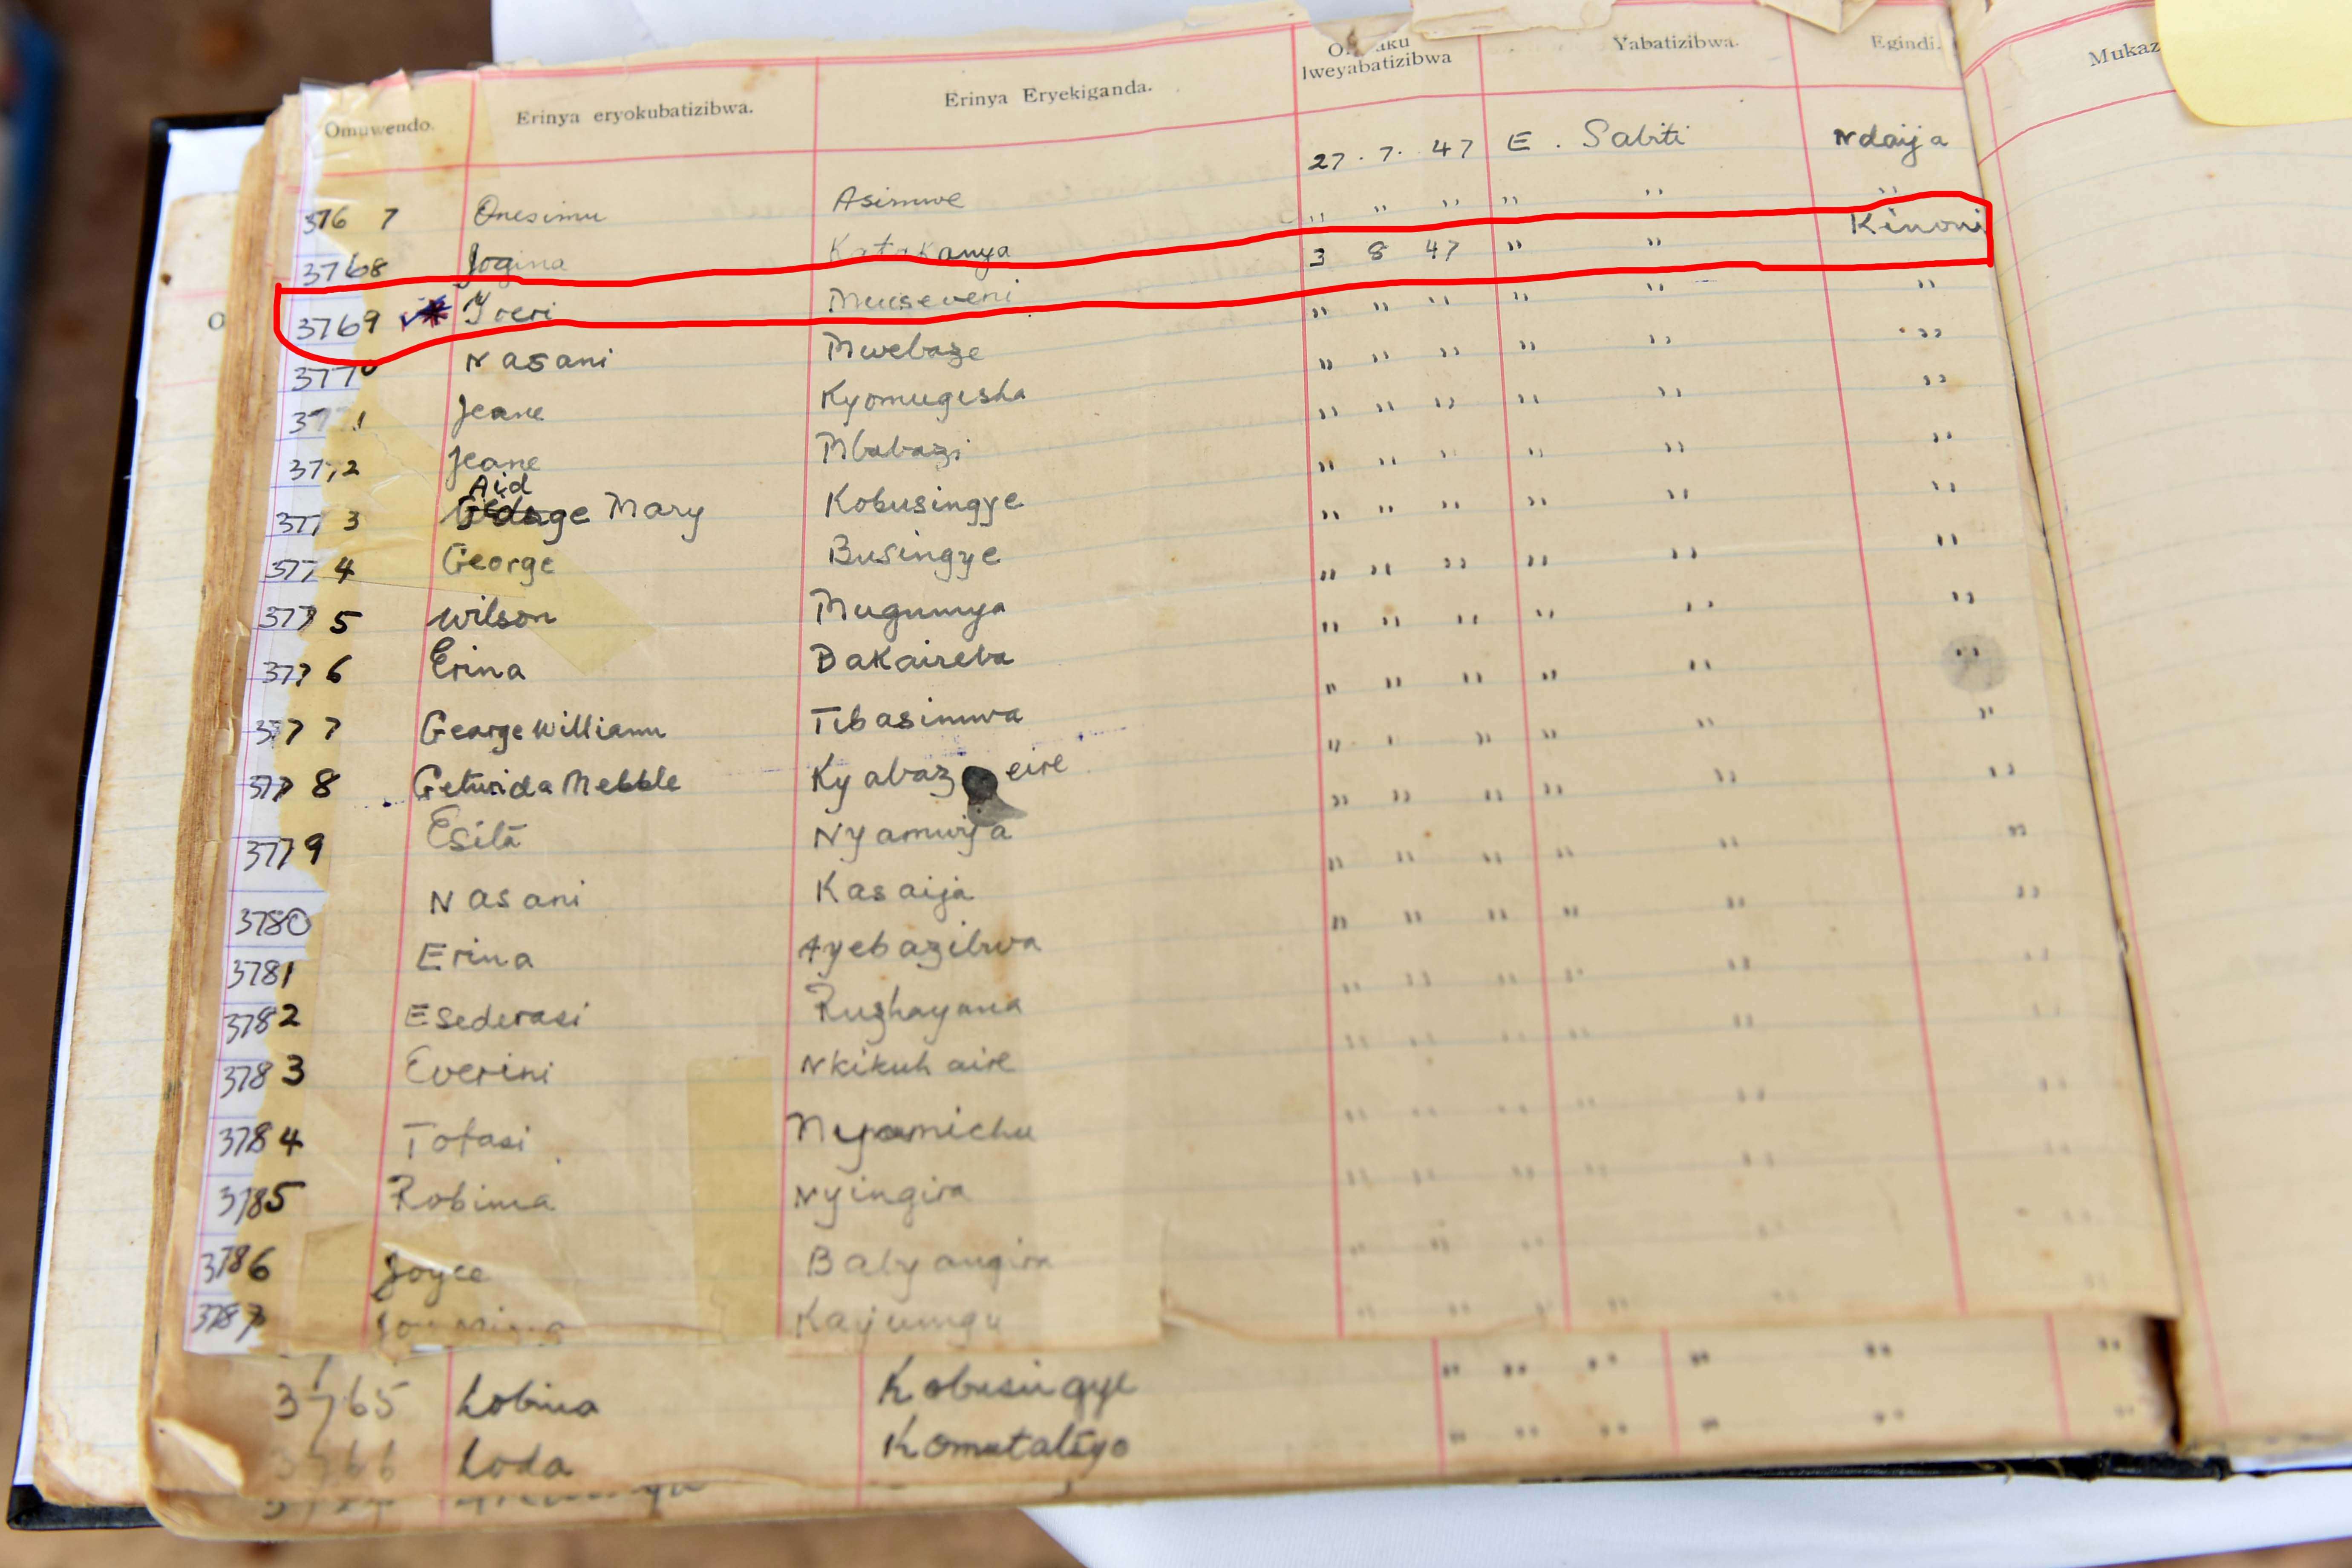 Omuwendo. Erinya eryokubatizibwa. Erinya Eryekiganda. lweyabatizibwa Yabatizibwa. Egindi.
3767 Onesimu Asimwe 27.7.47 E. Sabiti Ndaija
3768 Jogina Katakanya " " " " " "
3769 Yoeri Museveni 3 8 47 " " Kinoni
3770 Nasani Mwebaze " " " " " "
3771 Jeane Kyomugisha " " " " " "
3772 Jeane Mbabazi " " " " " "
3773 Aid Mary Kobusingye " " " " " "
3774 George Busingye " " " " " "
3775 Wilson Mugumya " " " " " "
3776 Erina Bakaireba " " " " " "
3777 George William Tibasimwa " " " " " "
3778 Getwida Mebble Kyabazeire " " " " " "
3779 Esita Nyamwija " " " " " "
3780 Nasani Kasaija " " " " " "
3781 Erina Ayebazibwa " " " " " "
3782 Esederasi Rushayana " " " " " "
3783 Everini Nkikuhaire " " " " " "
3784 Tofasi Nyamichu " " " " " "
3785 Robina Nyingira " " " " " "
3786 Joyce Balyangira " " " " " "
3787 Kajungu " " " " " "
3765 Lobina Kobusingye " " " " " "
3766 Loda Komutalego " " " " " "
Mukaz